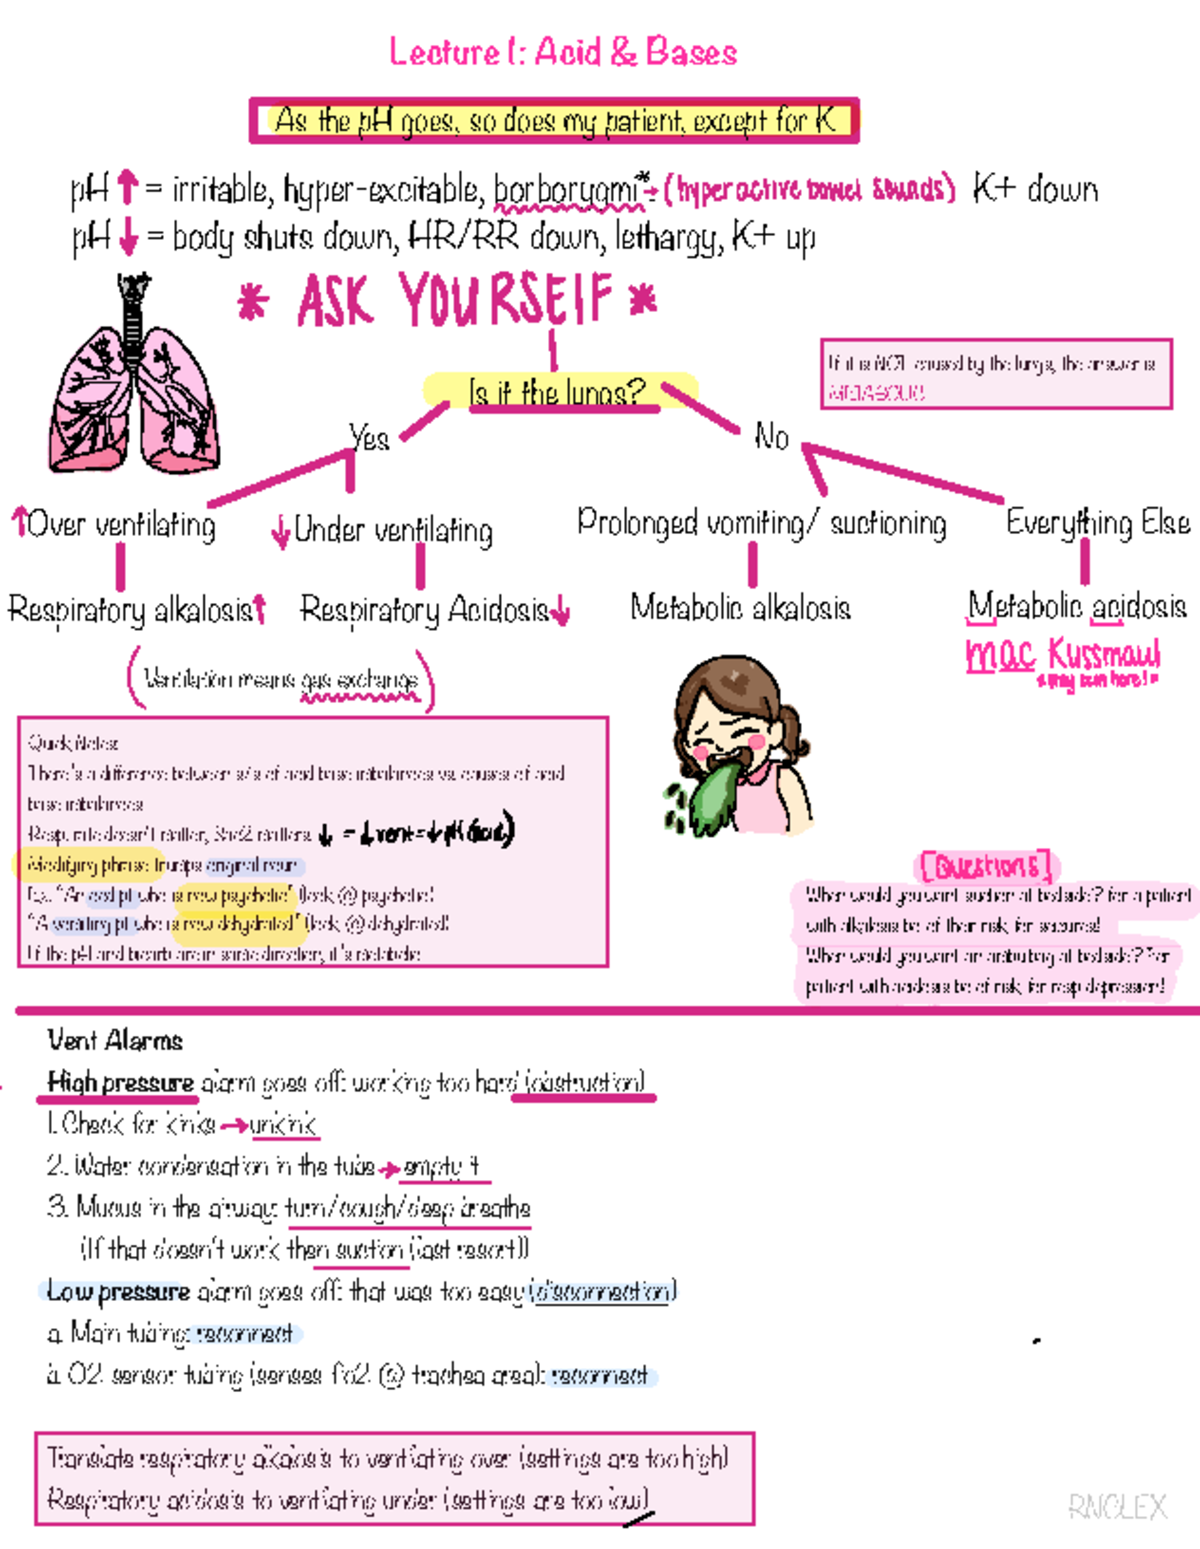 Lecture 1: Acid & Bases
As the pH goes, so does my patient, except for K
pH ↑ = irritable, hyper-excitable, borborygmi* → (hyperactive bowel sounds) K+ down
pH ↓ = body shuts down, HR/RR down, lethargy, K+ up
* ASK YOURSELF *
Is it the lungs?
If it is NOT caused by the lungs, the answer is
METABOLIC!
Yes
No
↑Over ventilating
↓Under ventilating
Prolonged vomiting/ suctioning
Everything Else
Respiratory alkalosis↑
Respiratory Acidosis↓
Metabolic alkalosis
Metabolic acidosis
mac Kussmaul
(Ventilation means gas exchange)
Quick Notes:
There's a difference between s/s of acid base imbalances vs. causes of acid
base imbalances
Resp. rate doesn't matter, SaO2 matters ↓ = ↓vent = ↓pH (acid)
Modifying phrase trumps original noun
Ex. "An ocd pt who is now psychotic" (look @ psychotic)
"A vomiting pt who is now dehydrated" (look @ dehydrated)
If the pH and bicarb are in same direction, it's metabolic
[Questions]
When would you want suction at bedside? For a patient
with alkalosis bc of their risk for seizures!
When would you want an ambu bag at bedside? For
patient with acidosis bc of risk for resp depression!
Vent Alarms
High pressure alarm goes off: working too hard (obstruction)
1. Check for kinks → unkink
2. Water condensation in the tube → empty it
3. Mucus in the airway: turn/cough/deep breathe
(If that doesn't work then suction (last resort))
Low pressure alarm goes off: that was too easy (disconnection)
a. Main tubing: reconnect
b. O2 sensor tubing (senses Fio2 @ trachea area): reconnect
Translate respiratory alkalosis to ventilating over (settings are too high)
Respiratory acidosis to ventilating under (settings are too low)
RNCLEX